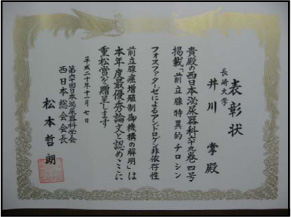 表彰状
長崎大学
井川 掌 殿
貴殿の西日本泌尿器科六十九巻四号
掲載「前立腺特異的チロシン
フォスファターゼによるアンドロゲン非依存性
前立腺癌増殖制御機構の解明」は
本年度最優秀論文と認めここに
重松賞を贈呈します
平成二十年十一月七日
第六十回西日本泌尿器科学会
西日本総会会長
松本哲朗